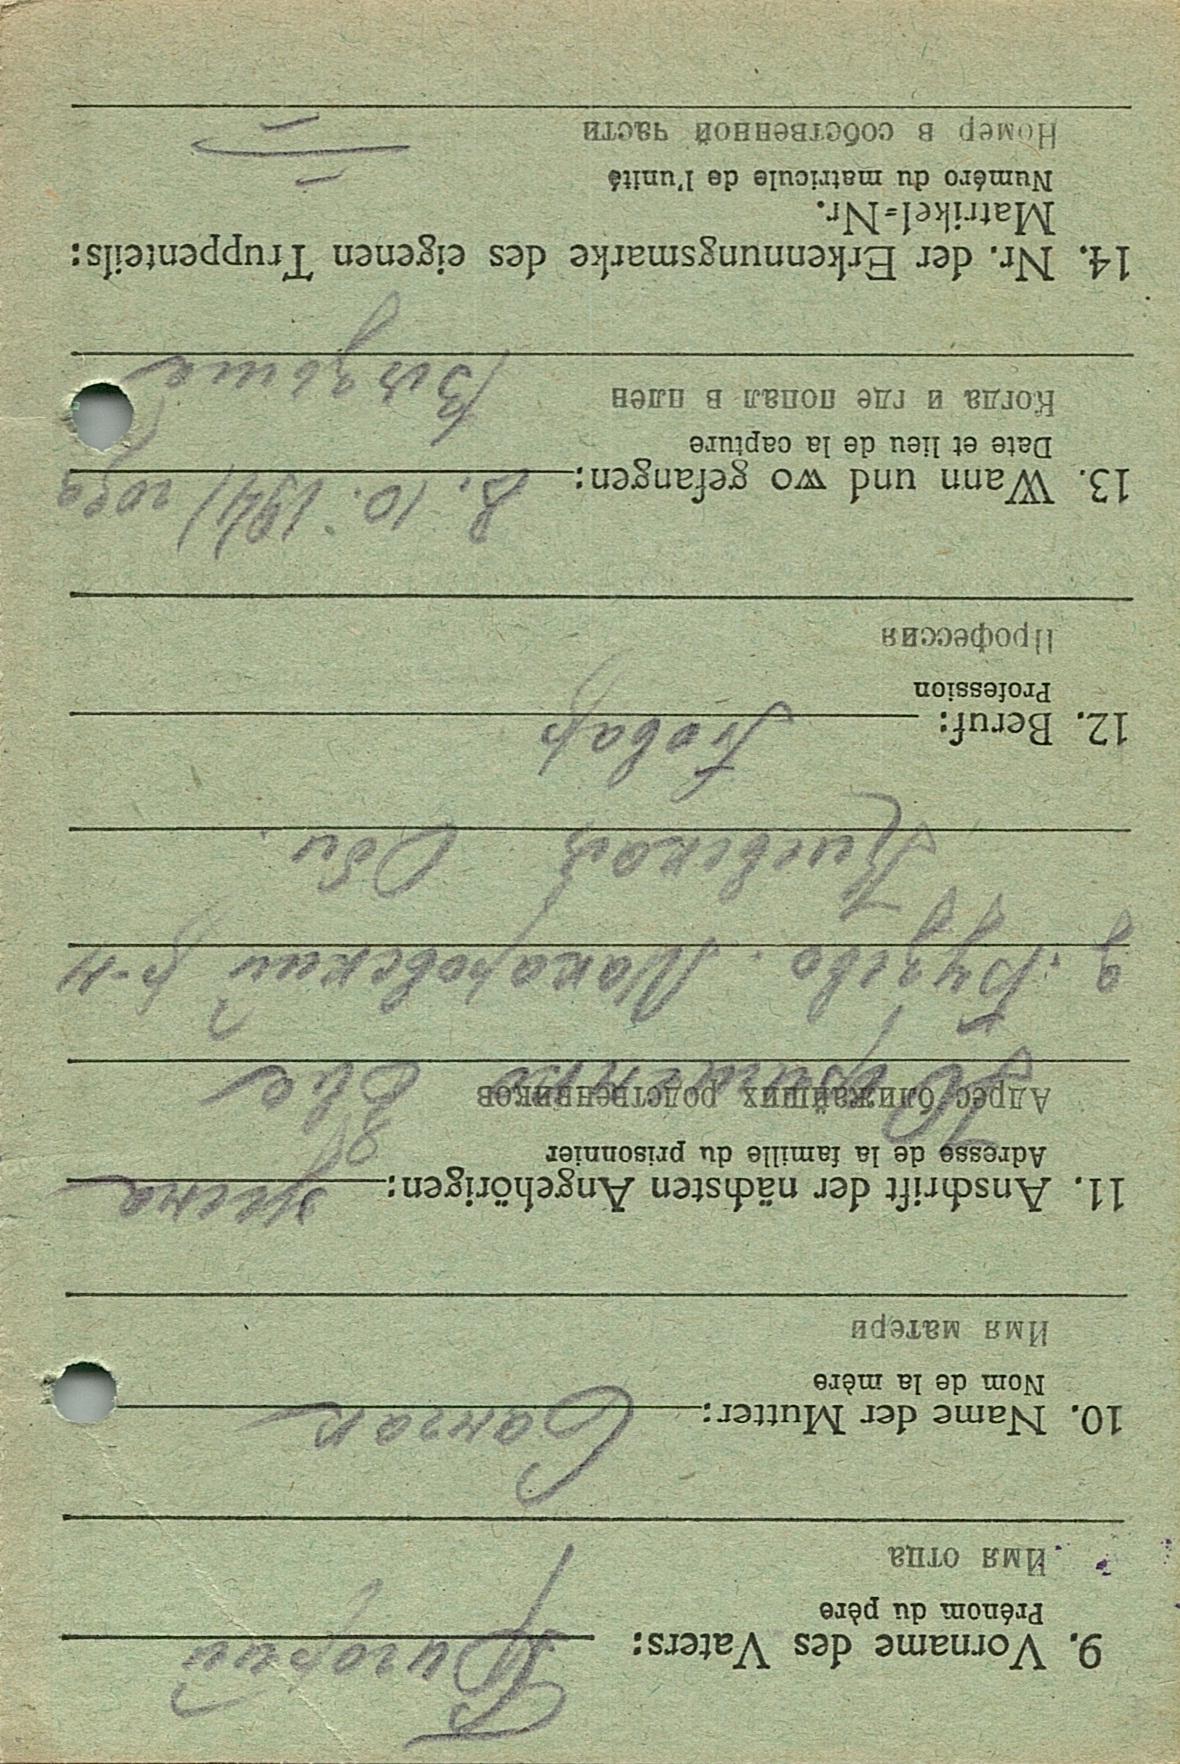 9. Vorname des Vaters: Григорий
Prénom du père
Имя отца
10. Name der Mutter:
Nom de la mère
Имя матери
11. Anschrift der nächsten Angehörigen:
Adresse de la famille du prisonnier
Адрес ближайших родственников
Макаровский р-н
Киевской Обл.
12. Beruf: Повар
Profession
Профессия
13. Wann und wo gefangen: 8. 10. 1941 года
Date et lieu de la capture
Когда и где попал в плен
Вязьма
14. Nr. der Erkennungsmarke des eigenen Truppenteils:
Matrikel=Nr.
Numéro du matricule de l'unité
Номер в собственной части